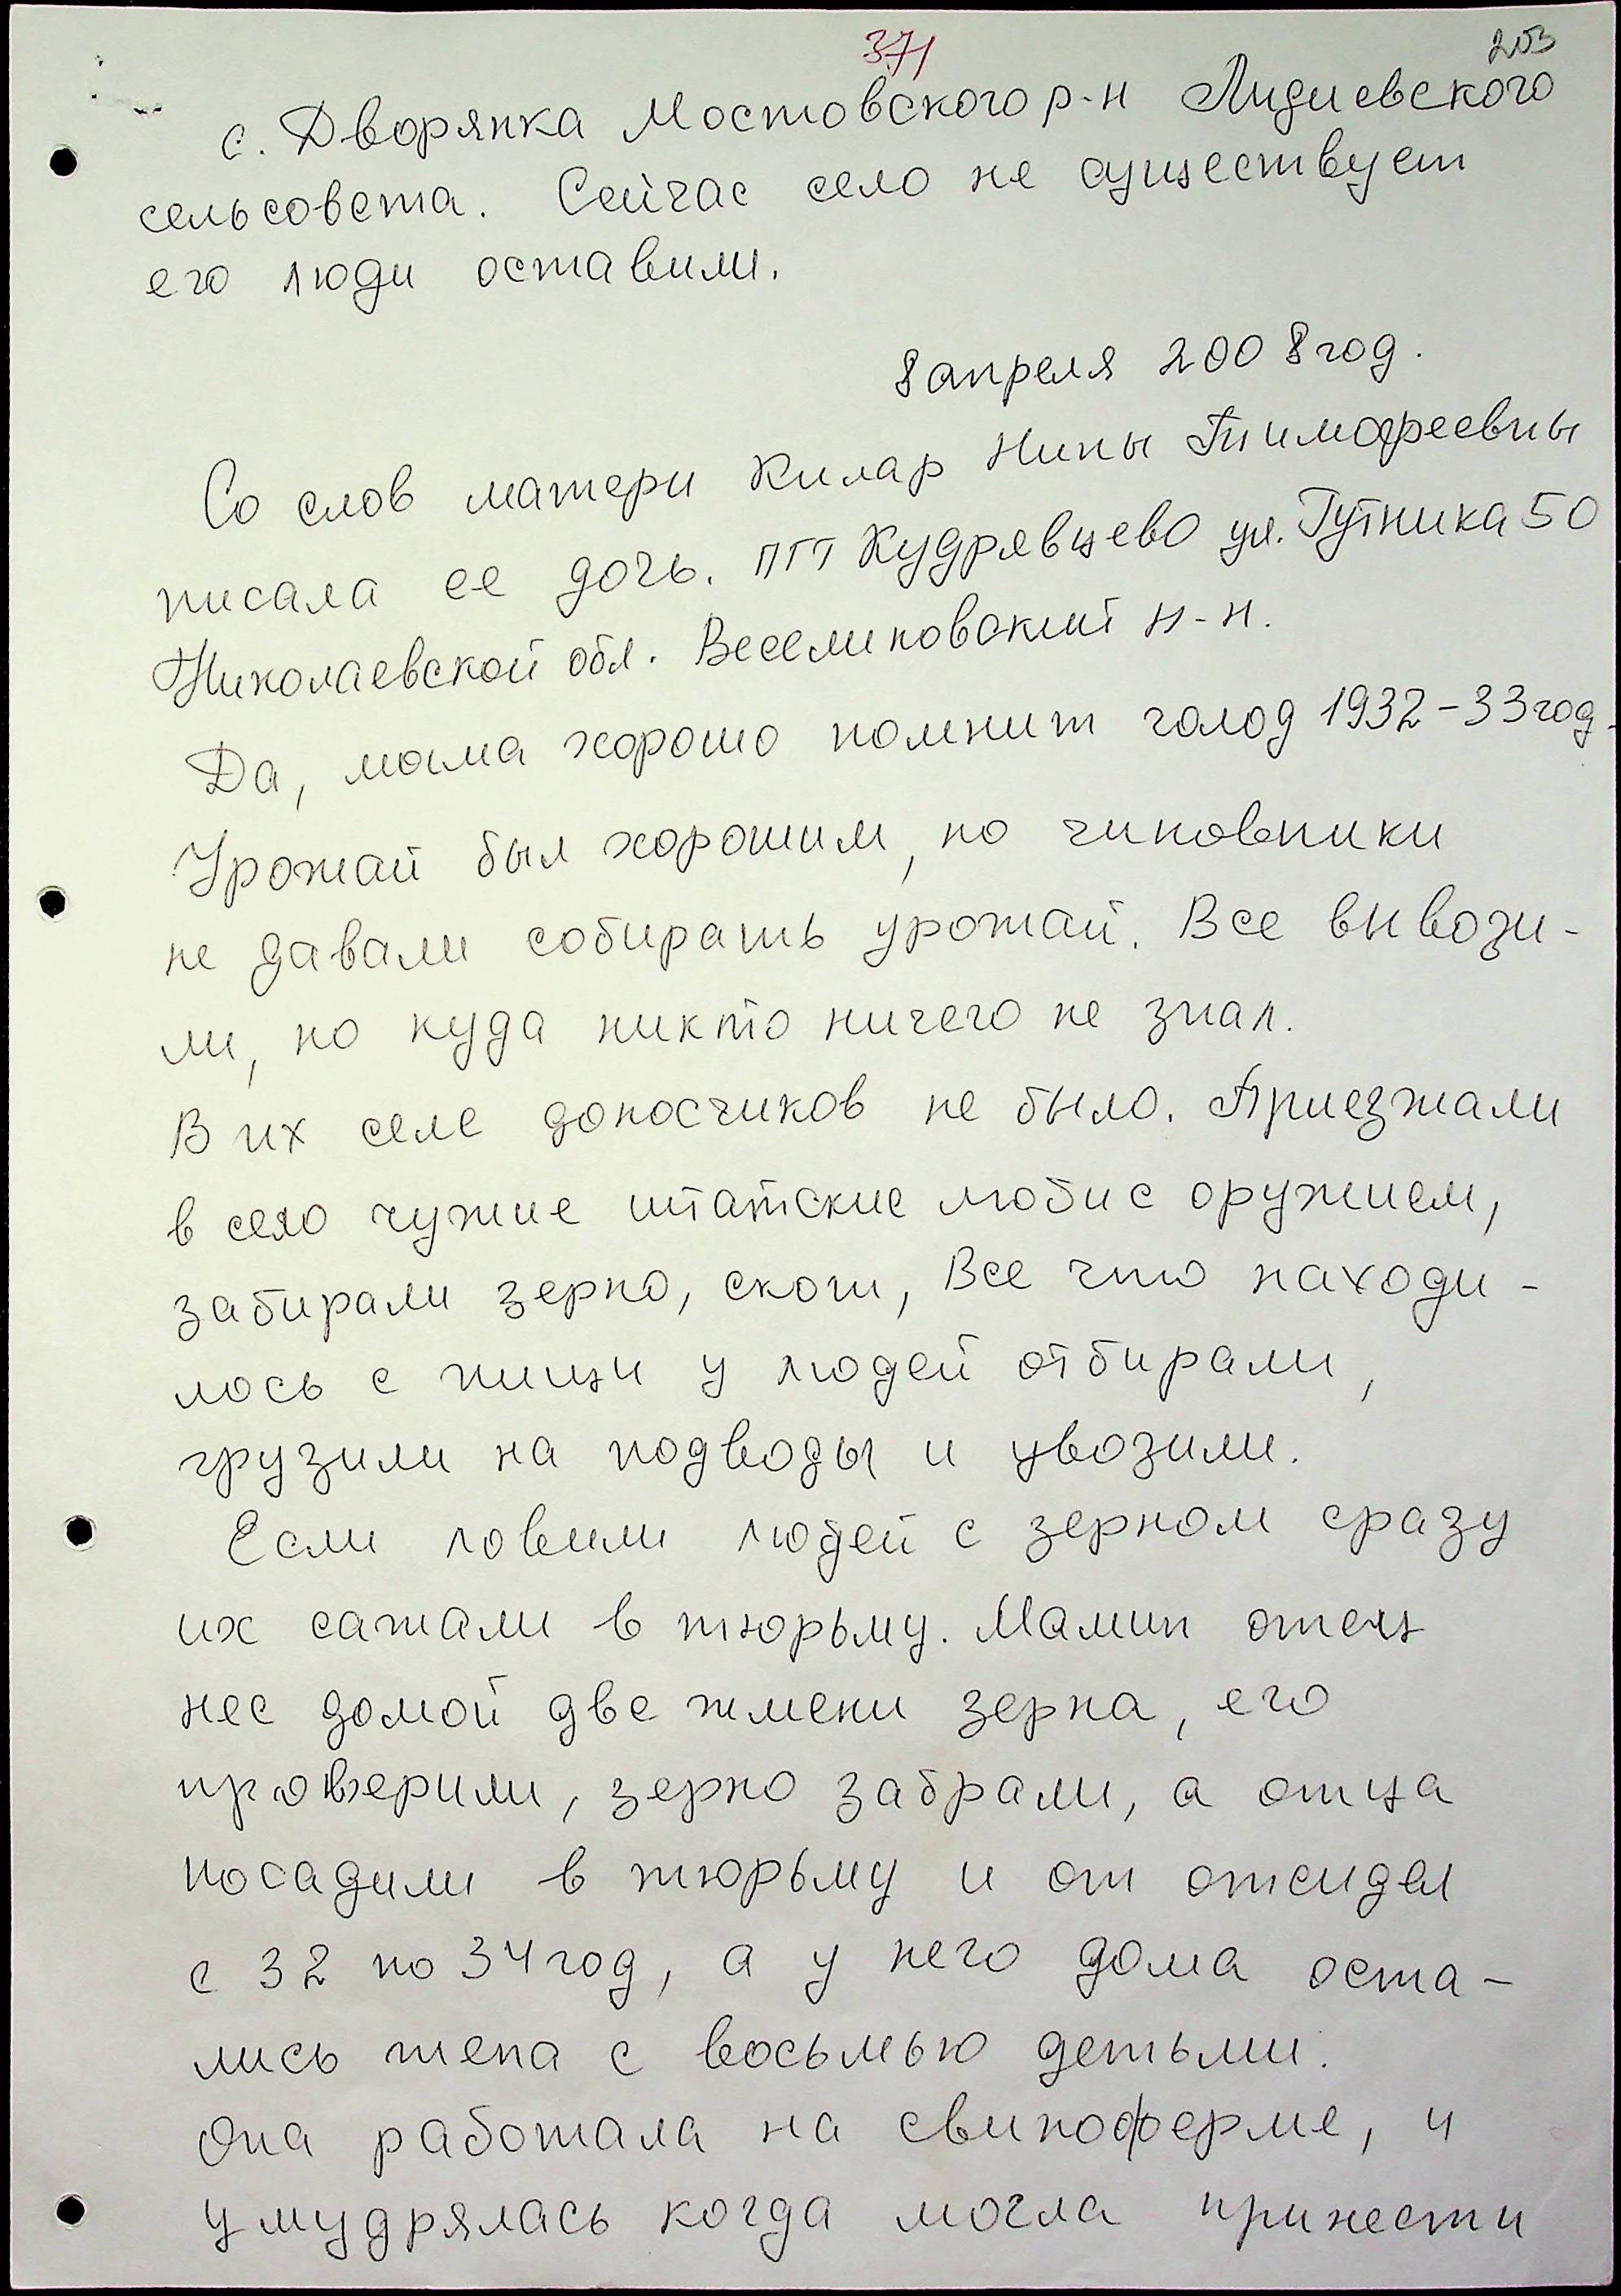 371 203
с. Дворянка Мостовского р-н Лидиевского
сельсовета. Сейчас село не существует
его люди оставили.
8 апреля 2008 год.
Со слов матери Килар Нины Тимофеевны
писала ее дочь. ПГТ Кудрявцево ул. Гутника 50
Николаевской обл. Веселиновский н-н.
Да, мама хорошо помнит голод 1932-33 год.
Урожай был хорошим, но чиновники
не давали собирать урожай. Все вывози-
ли, но куда никто ничего не знал.
В их селе доносчиков не было. Приезжали
в село чужие штатские люди с оружием,
забирали зерно, скот, все что находи-
лось с пищи у людей отбирали,
грузили на подводы и увозили.
Если ловили людей с зерном сразу
их сажали в тюрьму. Мамин отец
нес домой две жмени зерна, его
проверили, зерно забрали, а отца
посадили в тюрьму и он отсидел
с 32 по 34 год, а у него дома оста-
лись жена с восьмью детьми.
Она работала на свиноферме, и
умудрялась когда могла принести